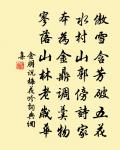 傲雪含芳破五花
水村山郭傍詩家
本為金鼎調羹物
寥落山林老歲華
金朋說梅花吟詞典網
集